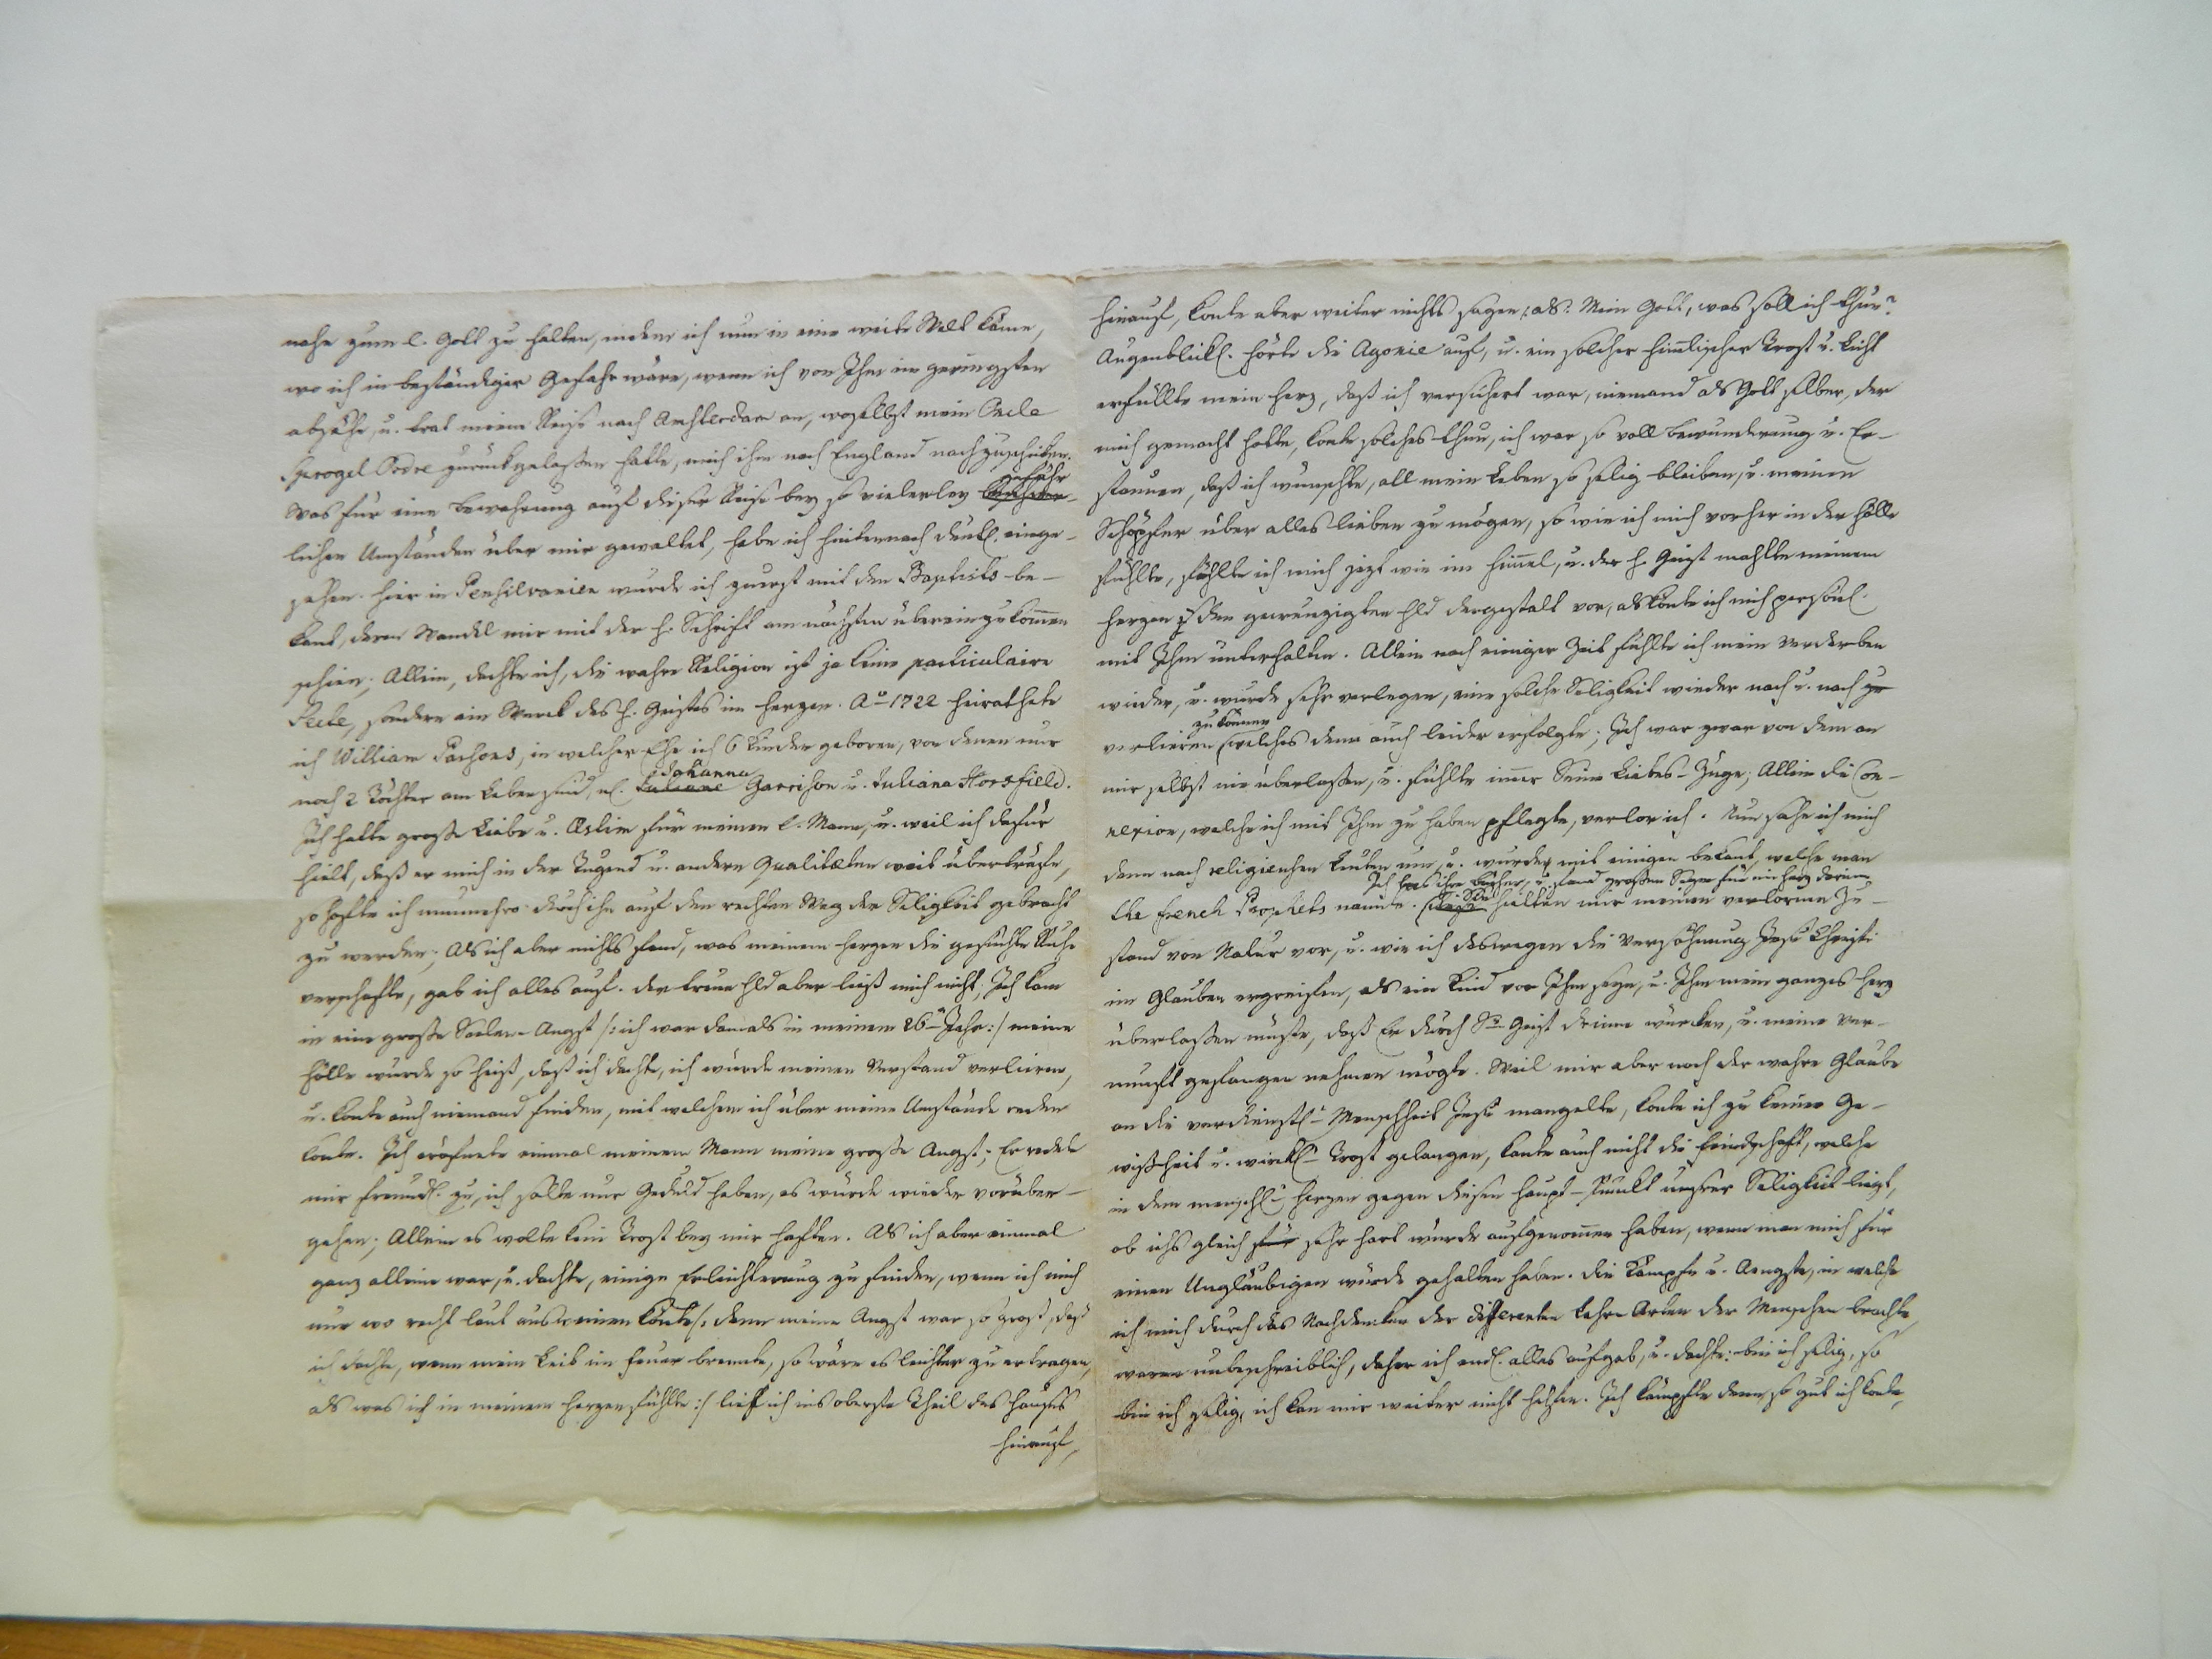 nahe zum l. Gott zu halten, indem ich nun in eine weite Welt käme,
wo ich in beständiger Gefahr wäre, wenn ich von Ihm im geringsten
absähe, u. trat meine Reise nach Amsterdam an, woselbst mein Oncle
Sprogel Ordre zurückgelaßen hatte, mich ihm nach England nachzuschicken.
Was für eine Bewahrung auf dieser Reise bey so vielerley gefähr-
lichen Umständen über mir gewaltet, habe ich hintennach deutl. einge-
sehen. Hier in Pensilvanien wurde ich zuerst mit den Baptists be-
kant, deren Wandel mir mit der H. Schrift am nächsten übereinzukommen
schien; Allein, dachte ich, die wahre Religion ist ja keine particulaire
Secte, sondern ein Werck des H. Geistes im Herzen. Ao 1722 heirathete
ich William Parsons, in welcher Ehe ich 6 Kinder geboren, von denen nur
noch 2 Töchter am Leben sind, nl. Juliana Johanna Garrison u. Juliana Horsfield.
Ich hatte große Liebe u. Estim für meinen l. Mann, u. weil ich dafür
hielt, daß er mich in der Tugend u. andern Qualitæten weit überträfe,
so hoffte ich nunmehro durch ihn auf den rechten Weg der Seligkeit gebracht
zu werden; Als ich aber nichts fand, was meinem Herzen die gesuchte Ruhe
verschafte, gab ich alles auf. Der treue Hld aber ließ mich nicht, Ich kam
in eine große Seelen-Angst /: ich war damals in meinem 26n Jahr :/ meine
Hölle wurde so heiß, daß ich dachte, ich würde meinen Verstand verlieren,
u. konte auch niemand finden, mit welchem ich über meine Umstände reden
konte. Ich eröfnete einmal meinem Mann meine große Angst; Er redete
mir freundl. zu, ich solte nur Geduld haben, es würde wieder vorüber-
gehen; Allein es wolte kein Trost bey mir haften. Als ich aber einmal
ganz alleine war, u. dachte, einige Erleichterung zu finden, wenn ich mich
nur wo recht laut ausweinen könte /: denn meine Angst war so groß, daß
ich dachte, wenn mein Leib im Feuer brennte, so wäre es leichter zu ertragen,
als was ich in meinem Herzen fühlte :/ lief ich ins oberste Theil des Hauses
hinauf,
hinauf, konte aber weiter nichts sagen, als: Mein Gott, was soll ich thun?
Augenblickl. hörte die Agonie auf, u. ein solcher himmlischer Trost u. Licht
erfüllte mein Herz, daß ich versichert war, niemand als Gott selber, der
mich gemacht hatte, konte solches thun, ich war so voll Bewunderung u. Er-
staunen, daß ich wünschte, all mein Leben so selig bleiben, u. meinen
Schöpfer über alles lieben zu mögen, so wie ich mich vorher in der Hölle
fühlte, fühlte ich mich jezt wie im Himmel, u. der H. Geist mahlte meinem
Herzen den gecreuzigten Hld dergestalt vor, als könte ich mich persönl.
mit Ihm unterhalten. Allein nach einiger Zeit fühlte ich mein Verderben
wieder, u. wurde sehr verlegen, eine solche Seligkeit wieder nach u. nach zu
zu können
verlieren, welches denn auch leider erfolgte; Ich war zwar von dem an
mir selbst nie überlaßen, u. fühlte immer Seine Liebes-Züge; Allein die Con-
nexion, welche ich mit Ihm zu haben pflegte, verlor ich. Nun sahe ich mich
denn nach religieuchen Leuten um, u. wurde mit einigen bekant, welche man
Ich las ihre Bücher, u. fand großen Segen für mein Herz darin
the french Prophets nannte. Sie hielten mir meinen verlornen Zu-
stand von Natur vor, u. wie ich deswegen die Versöhnung Jesu Christi
im Glauben ergreiffen, als ein Kind vor Ihm seyn, u. Ihm mein ganzes Herz
überlaßen müßte, daß Er durch Sn Geist drinne würcken, u. meine Ver-
nunft gefangen nehmen mögte. Weil mir aber noch der wahre Glaube
an die verdienstl. Menschheit Jesu mangelte, konte ich zu keiner Ge-
wißheit u. wirckl. Trost gelangen, kante auch nicht die Feindschaft, welche
in dem menschl. Herzen gegen diesen Haupt-Punckt unsrer Seligkeit liegt,
ob ichs gleich sehr hart würde aufgenommen haben, wenn man mich für
einen Ungläubigen würde gehalten haben. Die Kämpfe u. Aengste, in welche
ich mich durch das Nachdencken der differenten Lehr-Arten der Menschen brachte,
waren unbeschreiblich, daher ich endl. alles aufgab, u. dachte: bin ich selig, so
bin ich selig, ich kan mir weiter nicht helfen. Ich kämpfte denn, so gut ich konte,